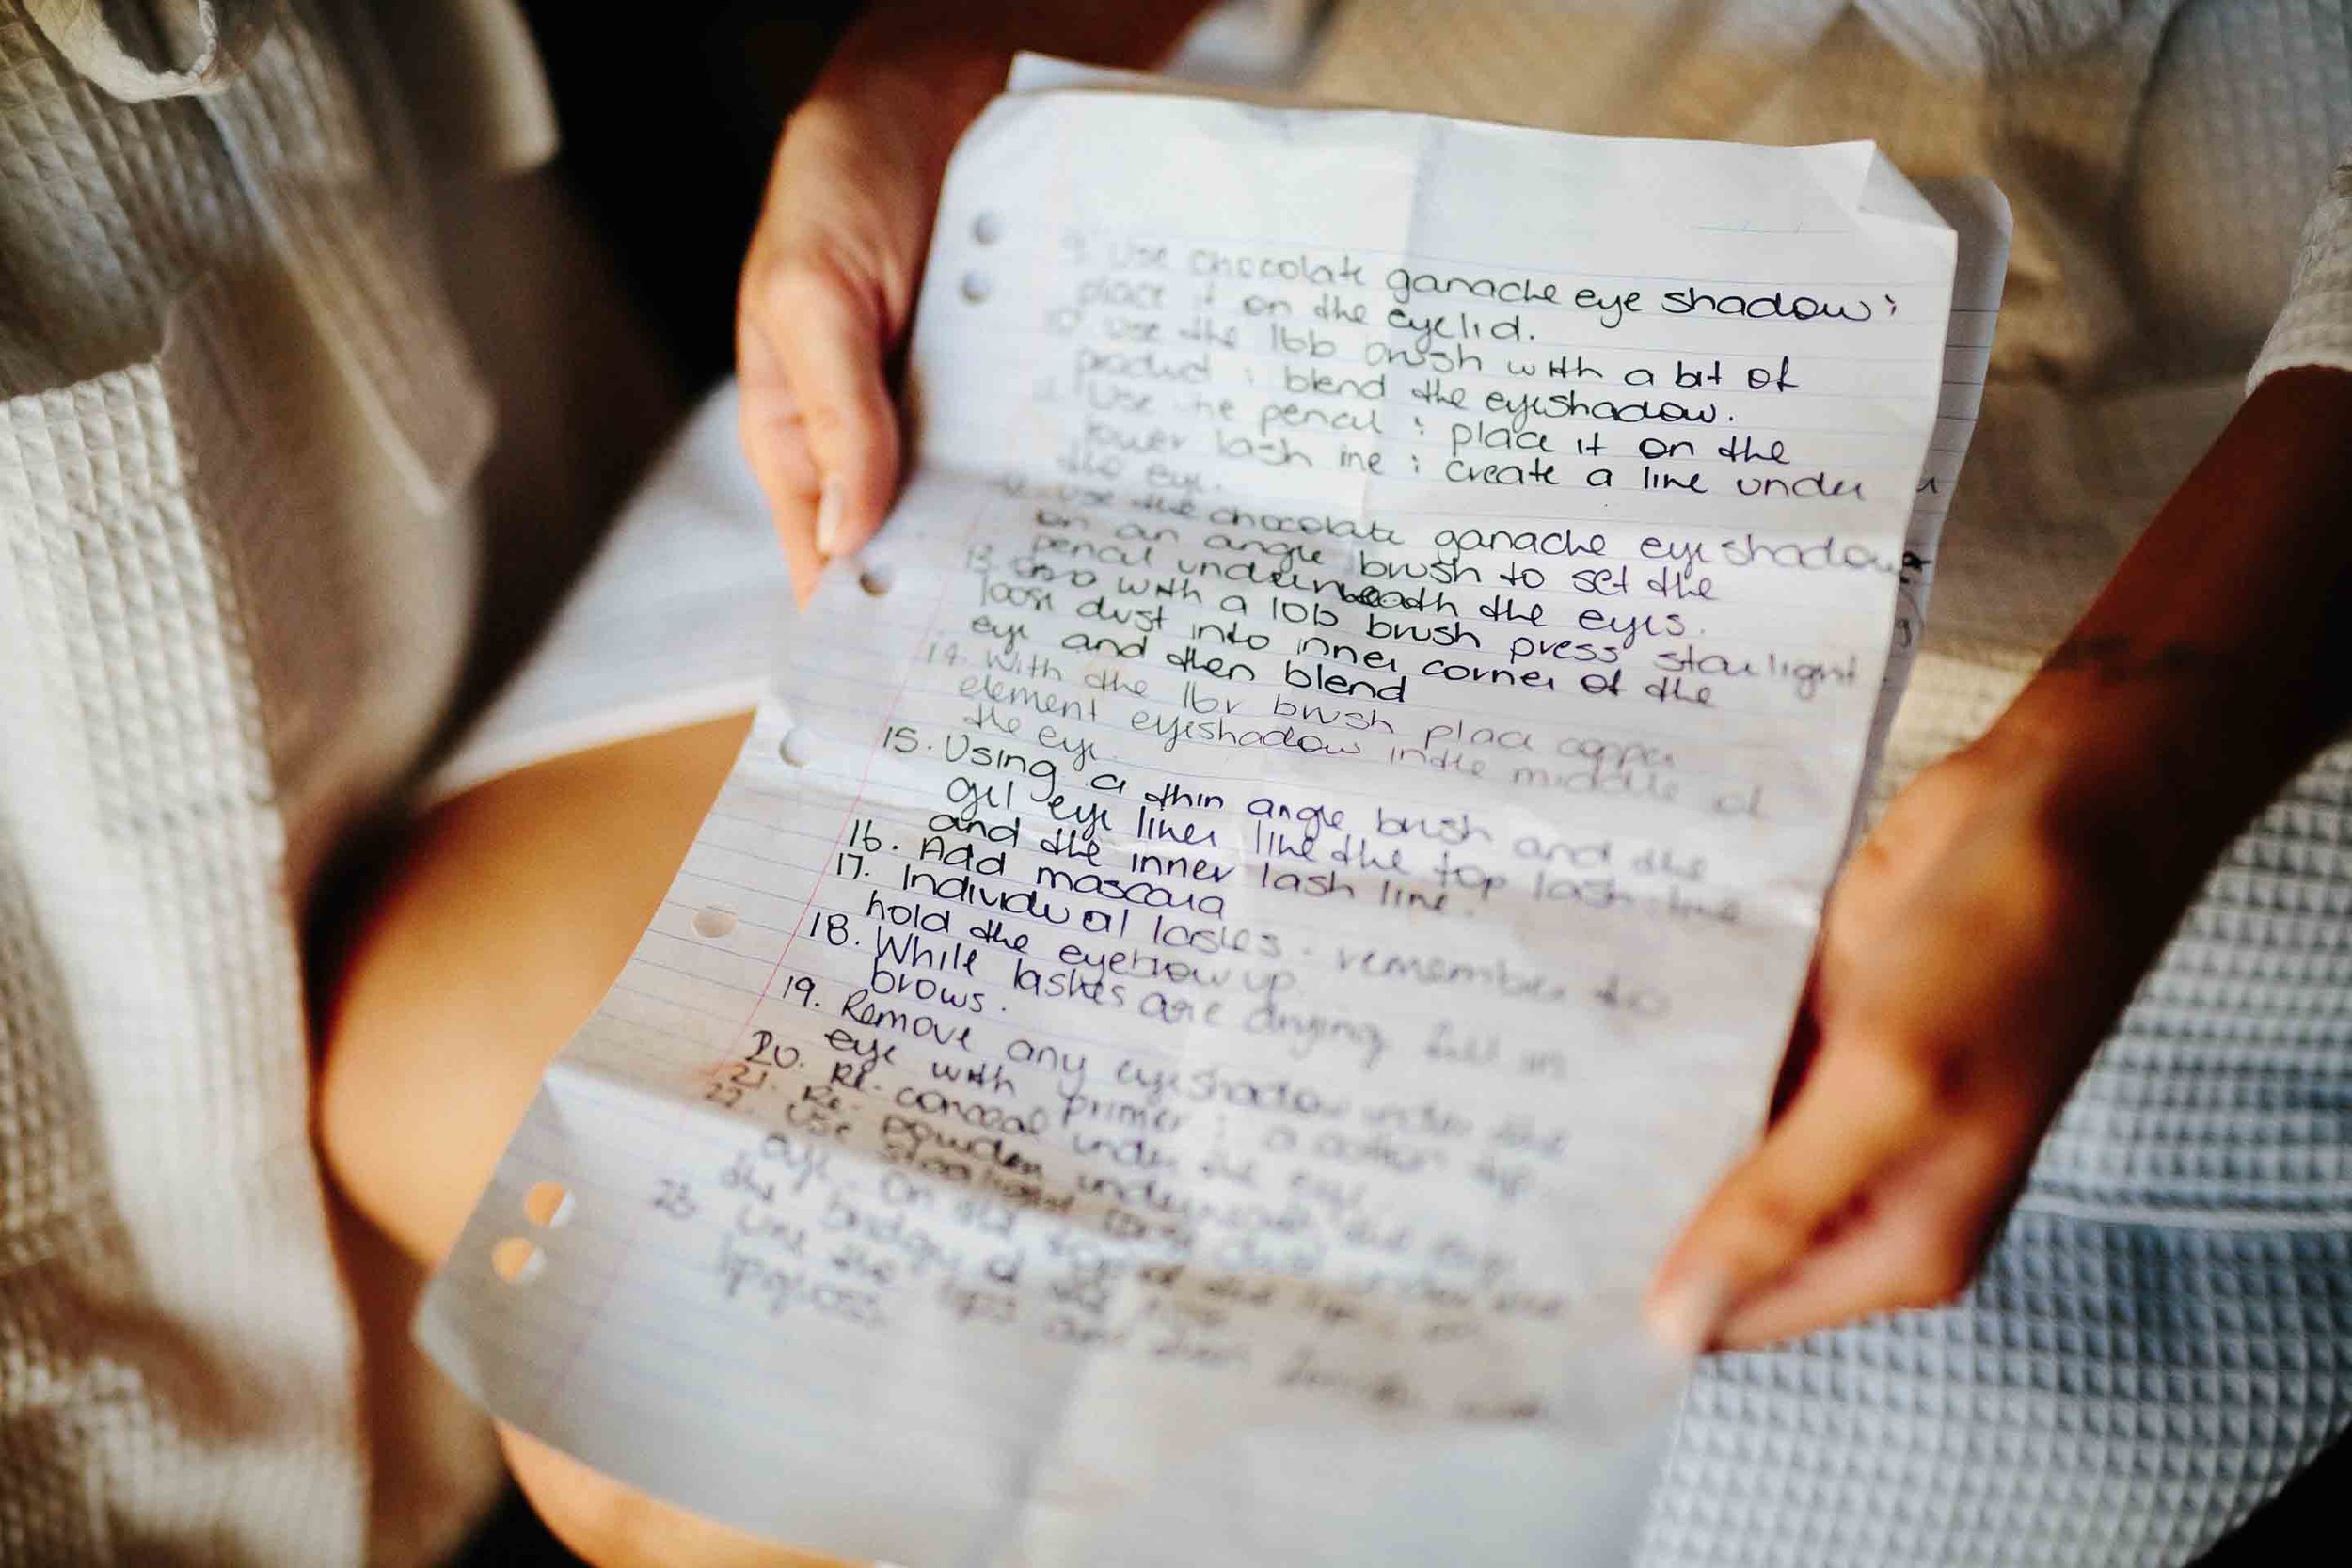 9. Use chocolate ganache eye shadow ;
place it on the eyelid.
10. Use the 16b brush with a bit of
product ; blend the eyeshadow.
11. Use the pencil ; place it on the
lower lash line ; create a line under
the eye.
12. Use the chocolate ganache eyeshadow
on an angle brush to set the
pencil underneath the eyes.
13. with a 10b brush press starlight
loose dust into inner corner of the
eye and then blend
14. With the 16v brush place copper
element eyeshadow in the middle of
the eye.
15. Using a thin angle brush and the
gel eye liner line the top lash line
and the inner lash line.
16. Add mascara
17. Individual lashes - remember to
hold the eyebrow up.
18. While lashes are drying fill in
brows.
19. Remove any eyeshadow under the
eye with primer ; a cotton tip.
20. Re-conceal under the eye.
21. Re-powder underneath the eye
22. Use starlight loose dust under the
eye. On the top of the lip ;
the bridge of the nose
23. Line the lips and then with
lipgloss.